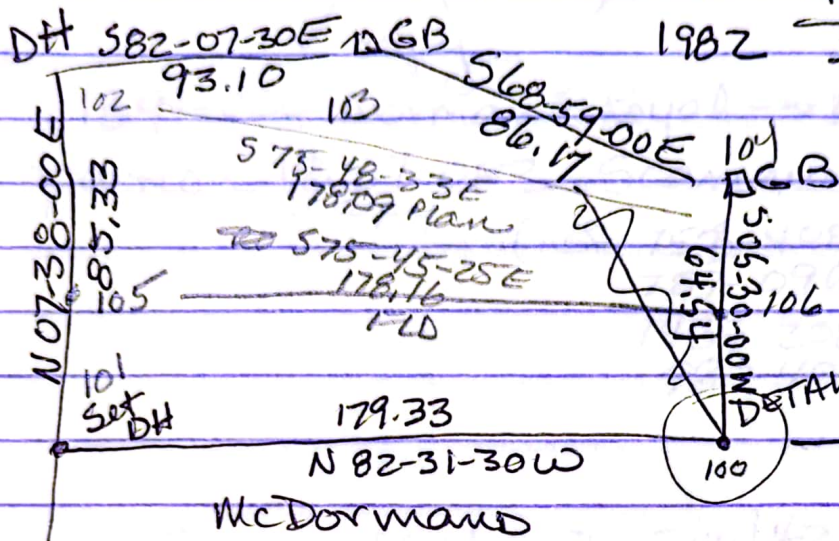 DH S82-07-30E GB 1982
93.10
S68-59-00E
86.17
102 103
104 GB
N07-38-00E
85.33
S73-48-33E
178.09 Plan
S75-45-25E
178.16
FLD
105 106
S05-30-00W
64.54
101
Set DH
179.33
DETAI
N82-31-30W
100
McDormand